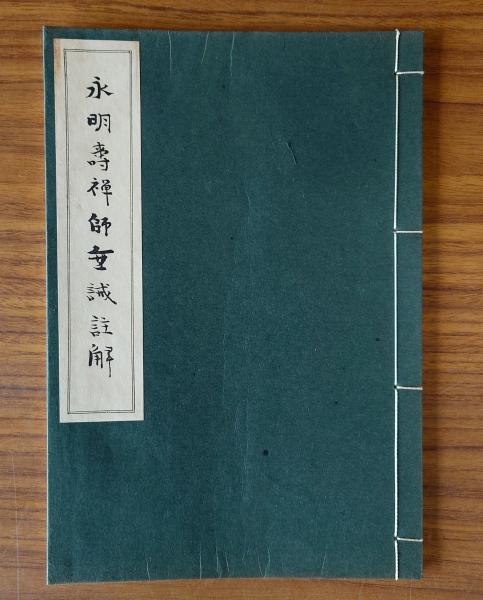 永明壽禅師垂誡註解